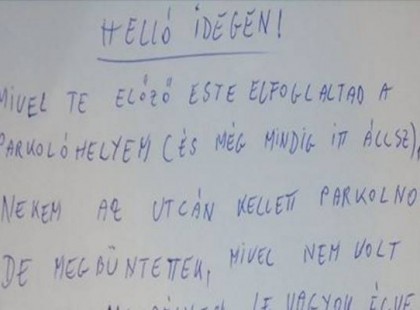 HELLÓ IDEGEN!
MIVEL TE ELŐZŐ ESTE ELFOGLALTAD A
PARKOLÓHELYEM (ÉS MÉG MINDIG ITT ÁLLSZ),
NEKEM AZ UTCÁN KELLETT PARKOLNO
DE MEGBÜNTETTEK, MIVEL NEM VOLT
LE VAGYOK ÉGVE